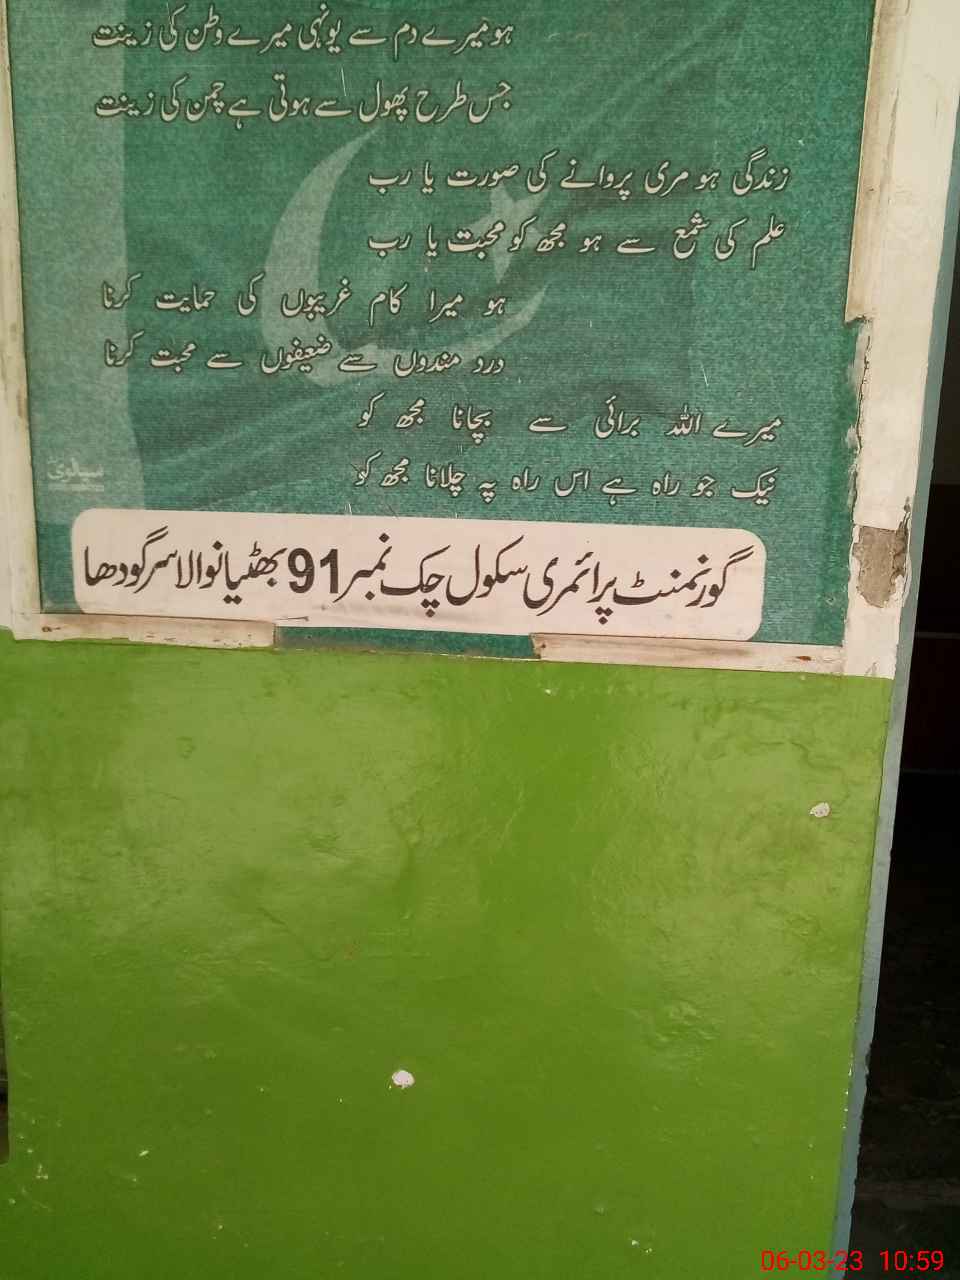 ہو میرے دم سے یونہی میرے وطن کی زینت
جس طرح پھول سے ہوتی ہے چمن کی زینت
زندگی ہو مری پروانے کی صورت یا رب
علم کی شمع سے ہو مجھ کو محبت یا رب
ہو میرا کام غریبوں کی حمایت کرنا
درد مندوں سے ضعیفوں سے محبت کرنا
میرے اللہ برائی سے بچانا مجھ کو
نیک جو راہ ہے اس راہ پہ چلانا مجھ کو
گورنمنٹ پرائمری سکول چک نمبر 91 بھٹیانوالا سرگودھا
06-03-23 10:59